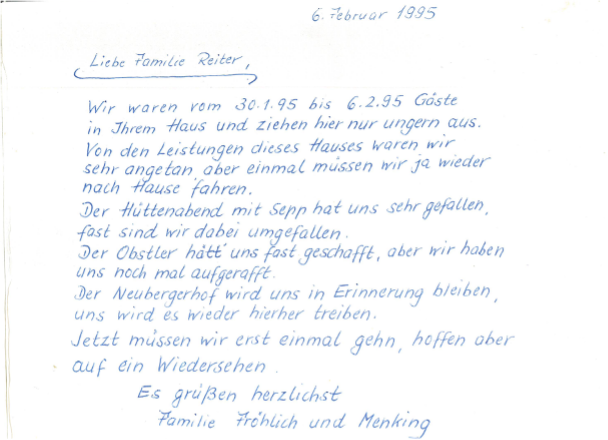 6. Februar 1995
Liebe Familie Reiter,
Wir waren vom 30.1.95 bis 6.2.95 Gäste
in Ihrem Haus und ziehen hier nur ungern aus.
Von den Leistungen dieses Hauses waren wir
sehr angetan, aber einmal müssen wir ja wieder
nach Hause fahren.
Der Hüttenabend mit Sepp hat uns sehr gefallen,
fast sind wir dabei umgefallen.
Der Obstler hätt' uns fast geschafft, aber wir haben
uns noch mal aufgerafft.
Der Neubergerhof wird uns in Erinnerung bleiben,
uns wird es wieder hierher treiben.
Jetzt müssen wir erst einmal gehn, hoffen aber
auf ein Wiedersehen.
Es grüßen herzlichst
Familie Fröhlich und Menking